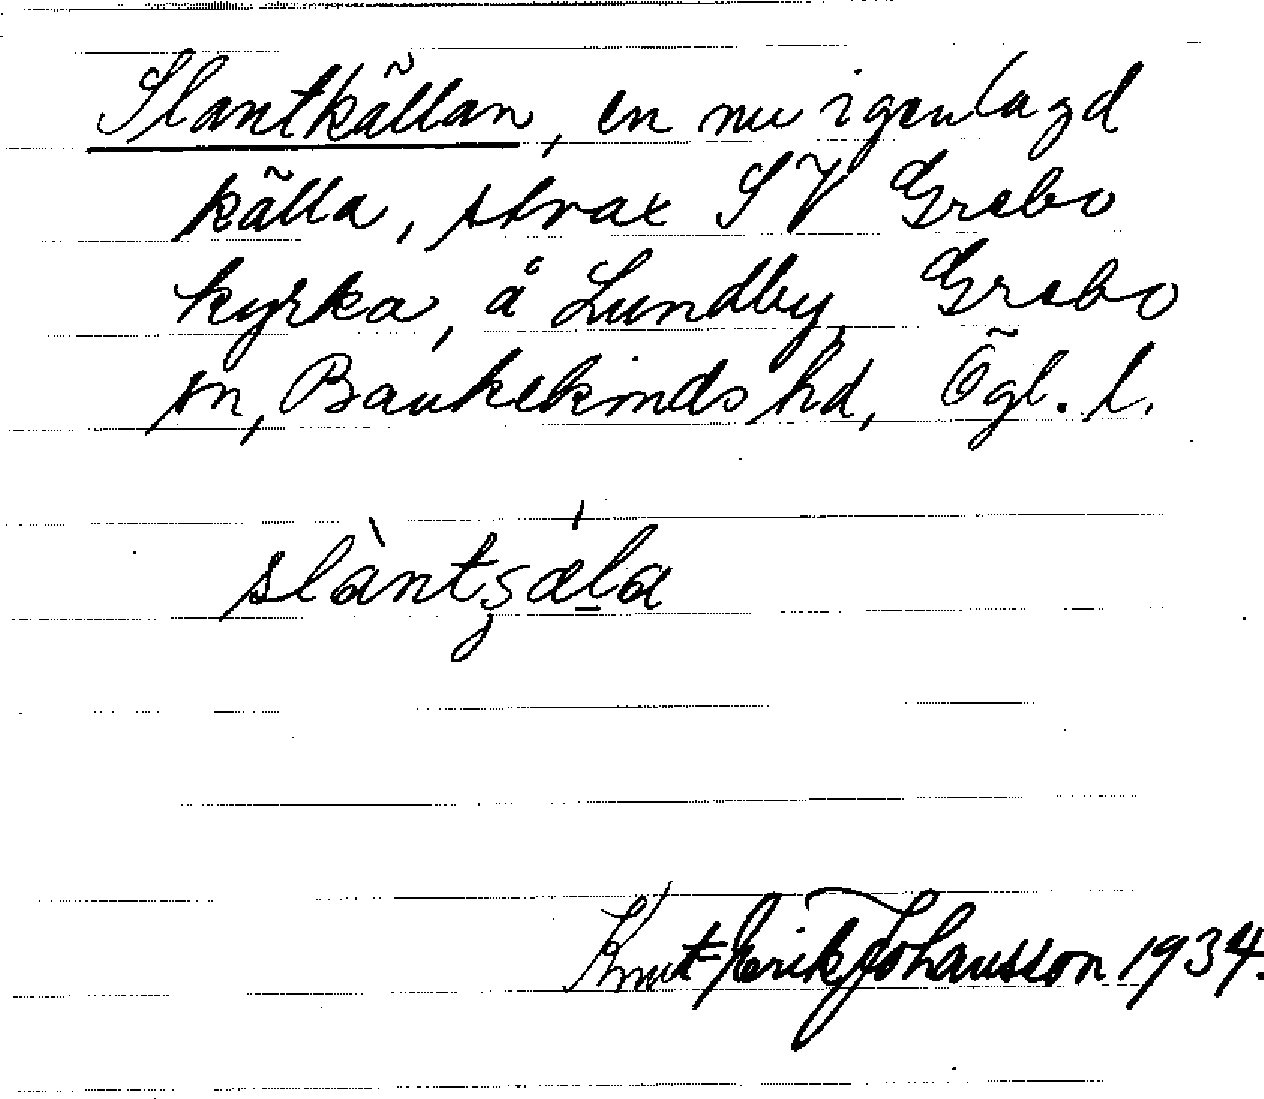 Slantkällan, en nu igenlagd
källa, strax SV Grebo
kyrka, å Lundby, Grebo
sn, Bankekinds hd, Ögl. l.
slàntȿæ̲la
Knut-Erik Johansson 1934.